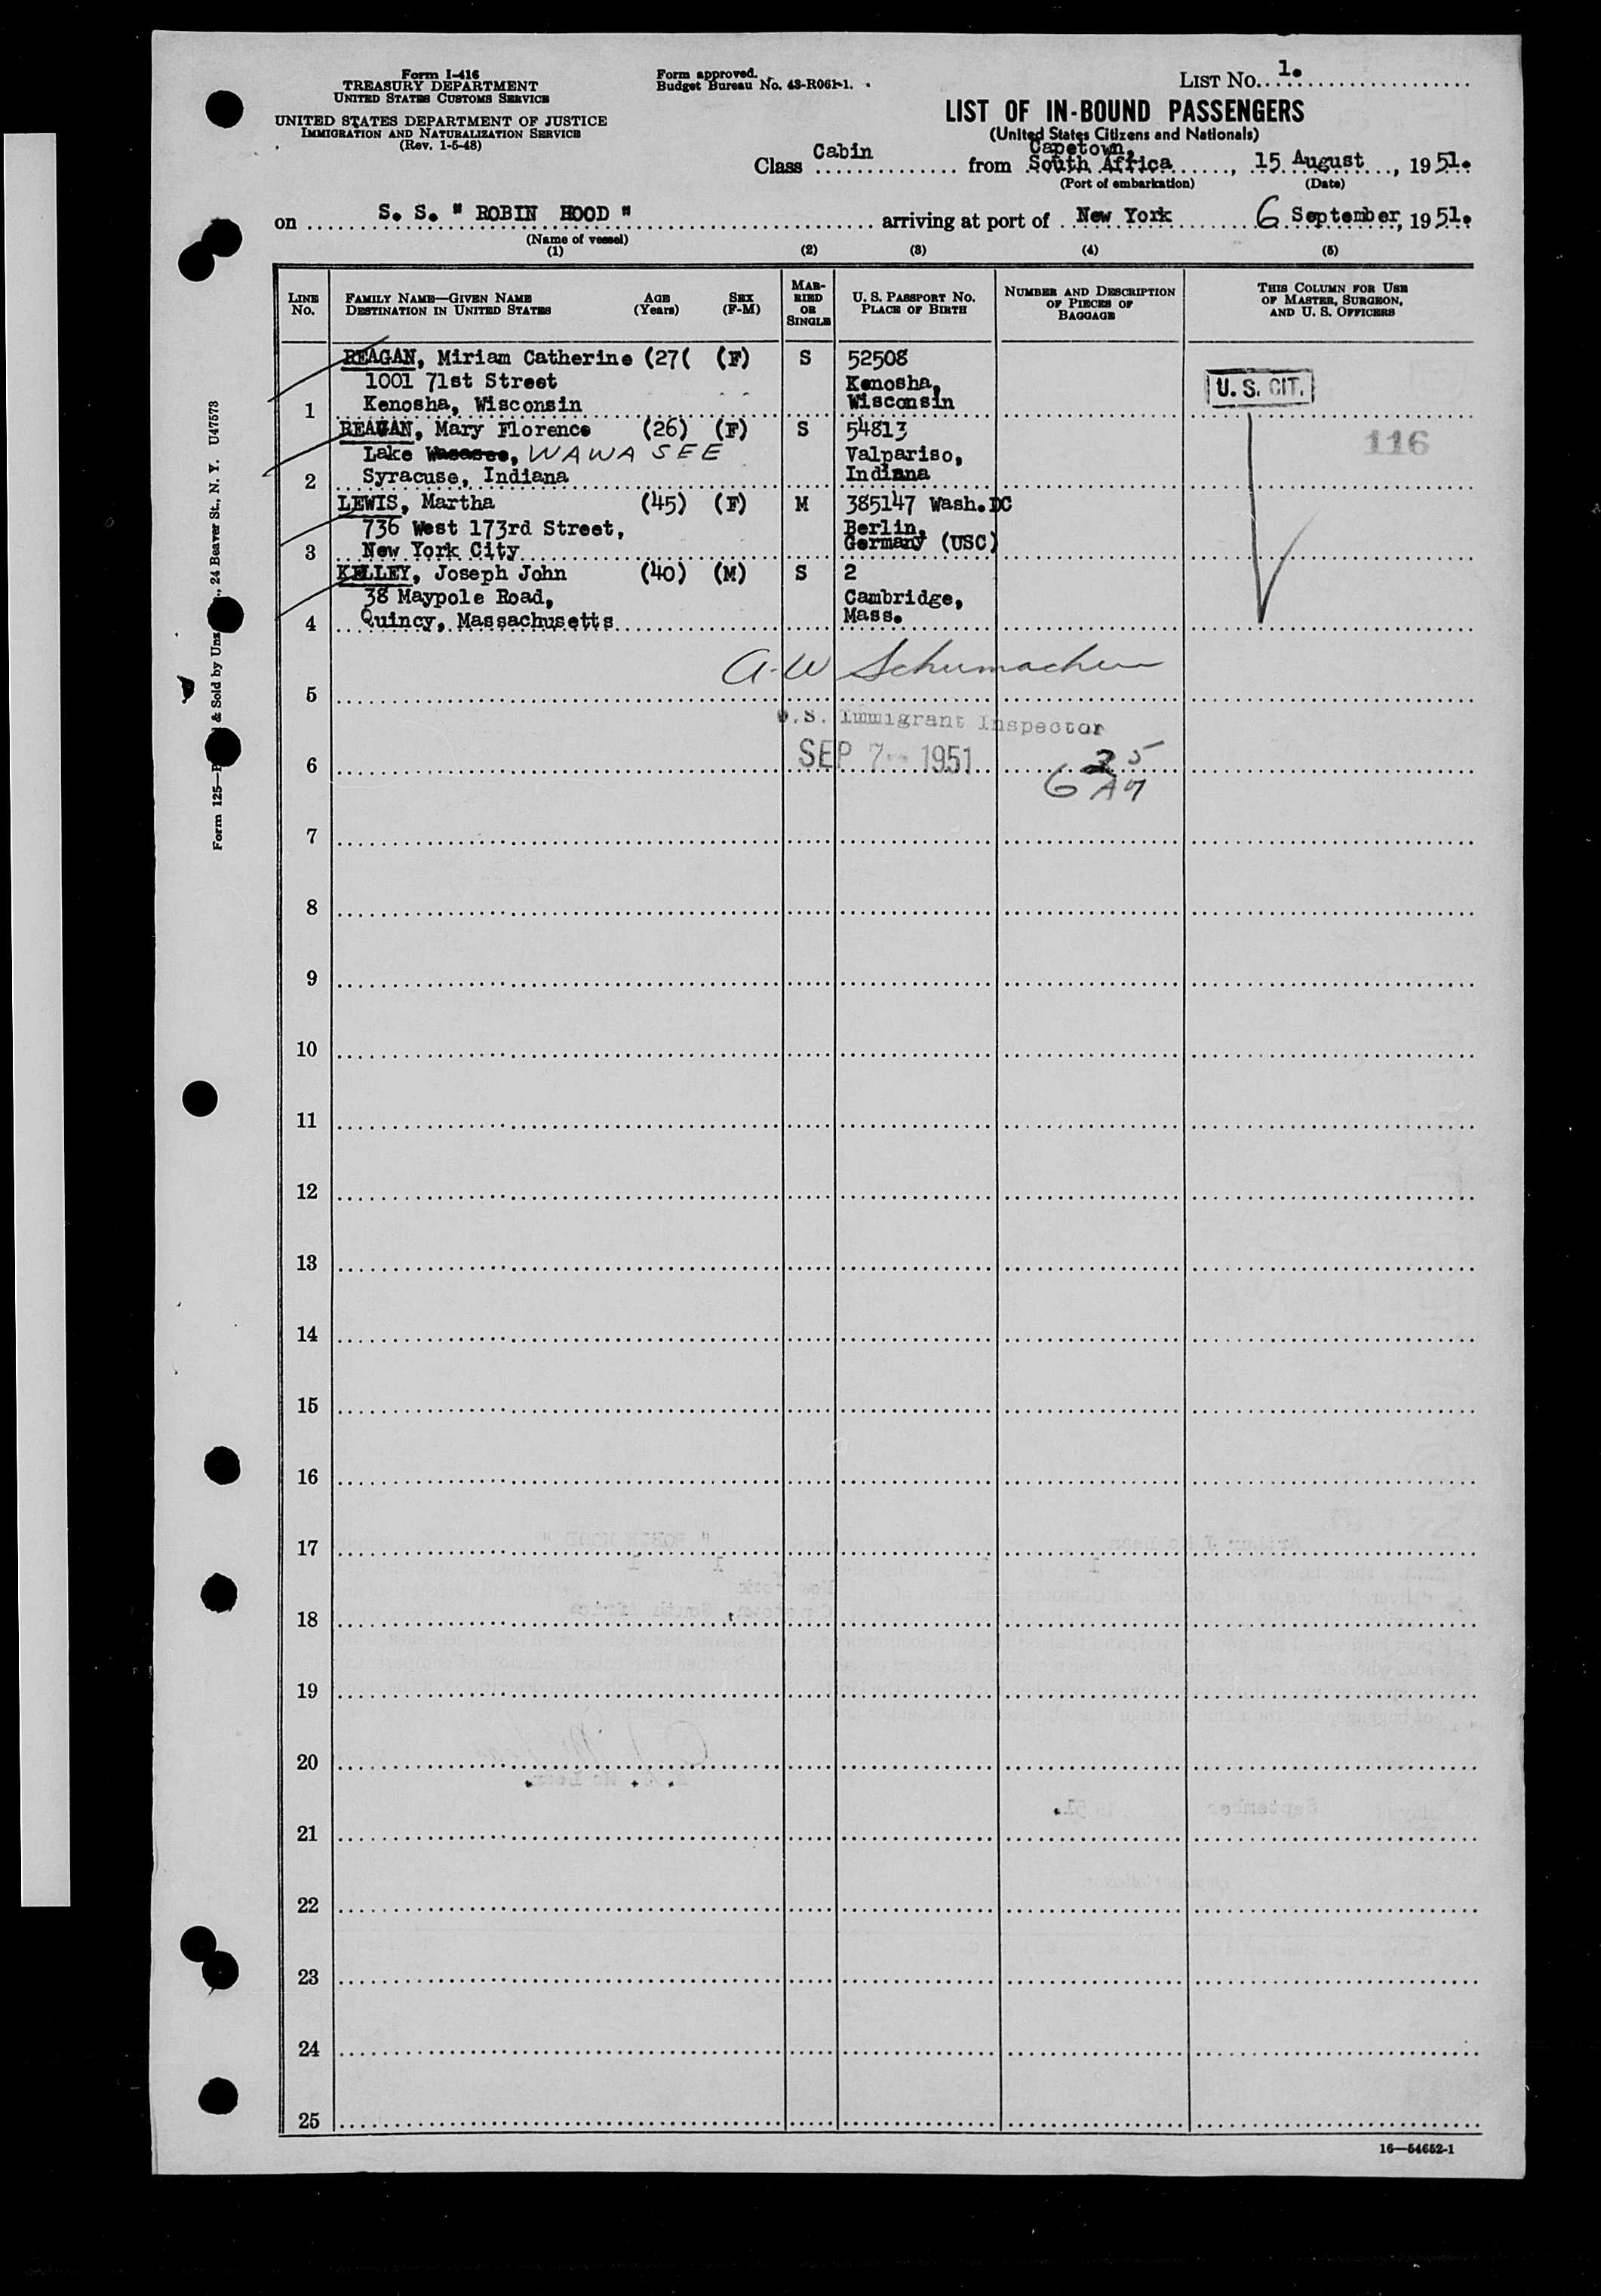 Form I-416
TREASURY DEPARTMENT
UNITED STATES CUSTOMS SERVICE
UNITED STATES DEPARTMENT OF JUSTICE
IMMIGRATION AND NATURALIZATION SERVICE
(Rev. 1-5-48)
Form approved.
Budget Bureau No. 43-R061-1.
LIST No. 1.
LIST OF IN-BOUND PASSENGERS
(United States Citizens and Nationals)
Class Cabin from Capetown, South Africa, 15 August, 1951.
(Port of embarkation) (Date)
on S. S. " ROBIN HOOD " arriving at port of New York 6 September, 1951.
(Name of vessel)
(1) (2) (3) (4) (5)
LINE No.
FAMILY NAME—GIVEN NAME
DESTINATION IN UNITED STATES
AGE (Years)
SEX (F-M)
MARRIED OR SINGLE
U. S. PASSPORT NO.
PLACE OF BIRTH
NUMBER AND DESCRIPTION OF PIECES OF BAGGAGE
THIS COLUMN FOR USE OF MASTER, SURGEON, AND U. S. OFFICERS
REAGAN, Miriam Catherine (27( (F) S 52508
1001 71st Street Kenosha,
1 Kenosha, Wisconsin Wisconsin
U. S. CIT.
REAGAN, Mary Florence (26) (F) S 54813
116
Lake WAWASEE Valpariso,
2 Syracuse, Indiana Indiana
LEWIS, Martha (45) (F) M 385147 Wash.DC
736 West 173rd Street, Berlin,
3 New York City Germany (USC)
KELLEY, Joseph John (40) (M) S 2
38 Maypole Road, Cambridge,
4 Quincy, Massachusetts Mass.
A. W Schumacher
5
U.S. Immigrant Inspector
6 SEP 7 1951
7
8
9
10
11
12
13
14
15
16
17
18
19
20
21
22
23
24
25
16—54652-1
Form 125— & Sold by 24 Beaver St., N. Y. U47573